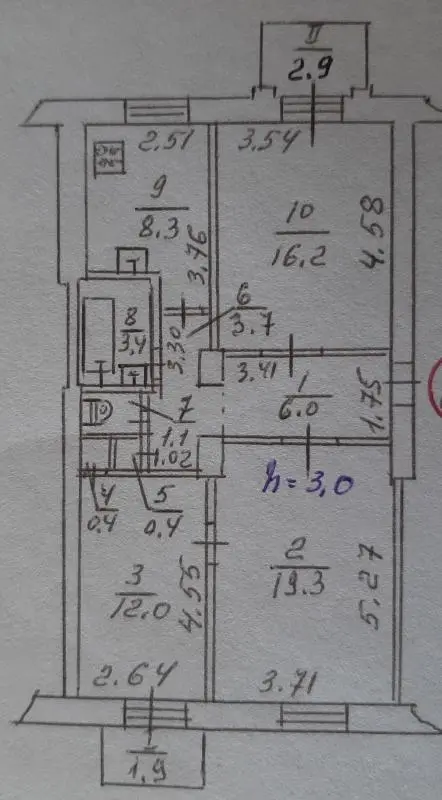 II
2.9
2.51
3.54
9
8.3
10
16.2
4.58
3.76
6
3.7
8
3.4
3.30
3.41
1
6.0
1.75
7
1.1
1.02
4
0.4
5
0.4
h = 3,0
2
19.3
3
12.0
4.55
5.27
2.64
3.71
I
1.9